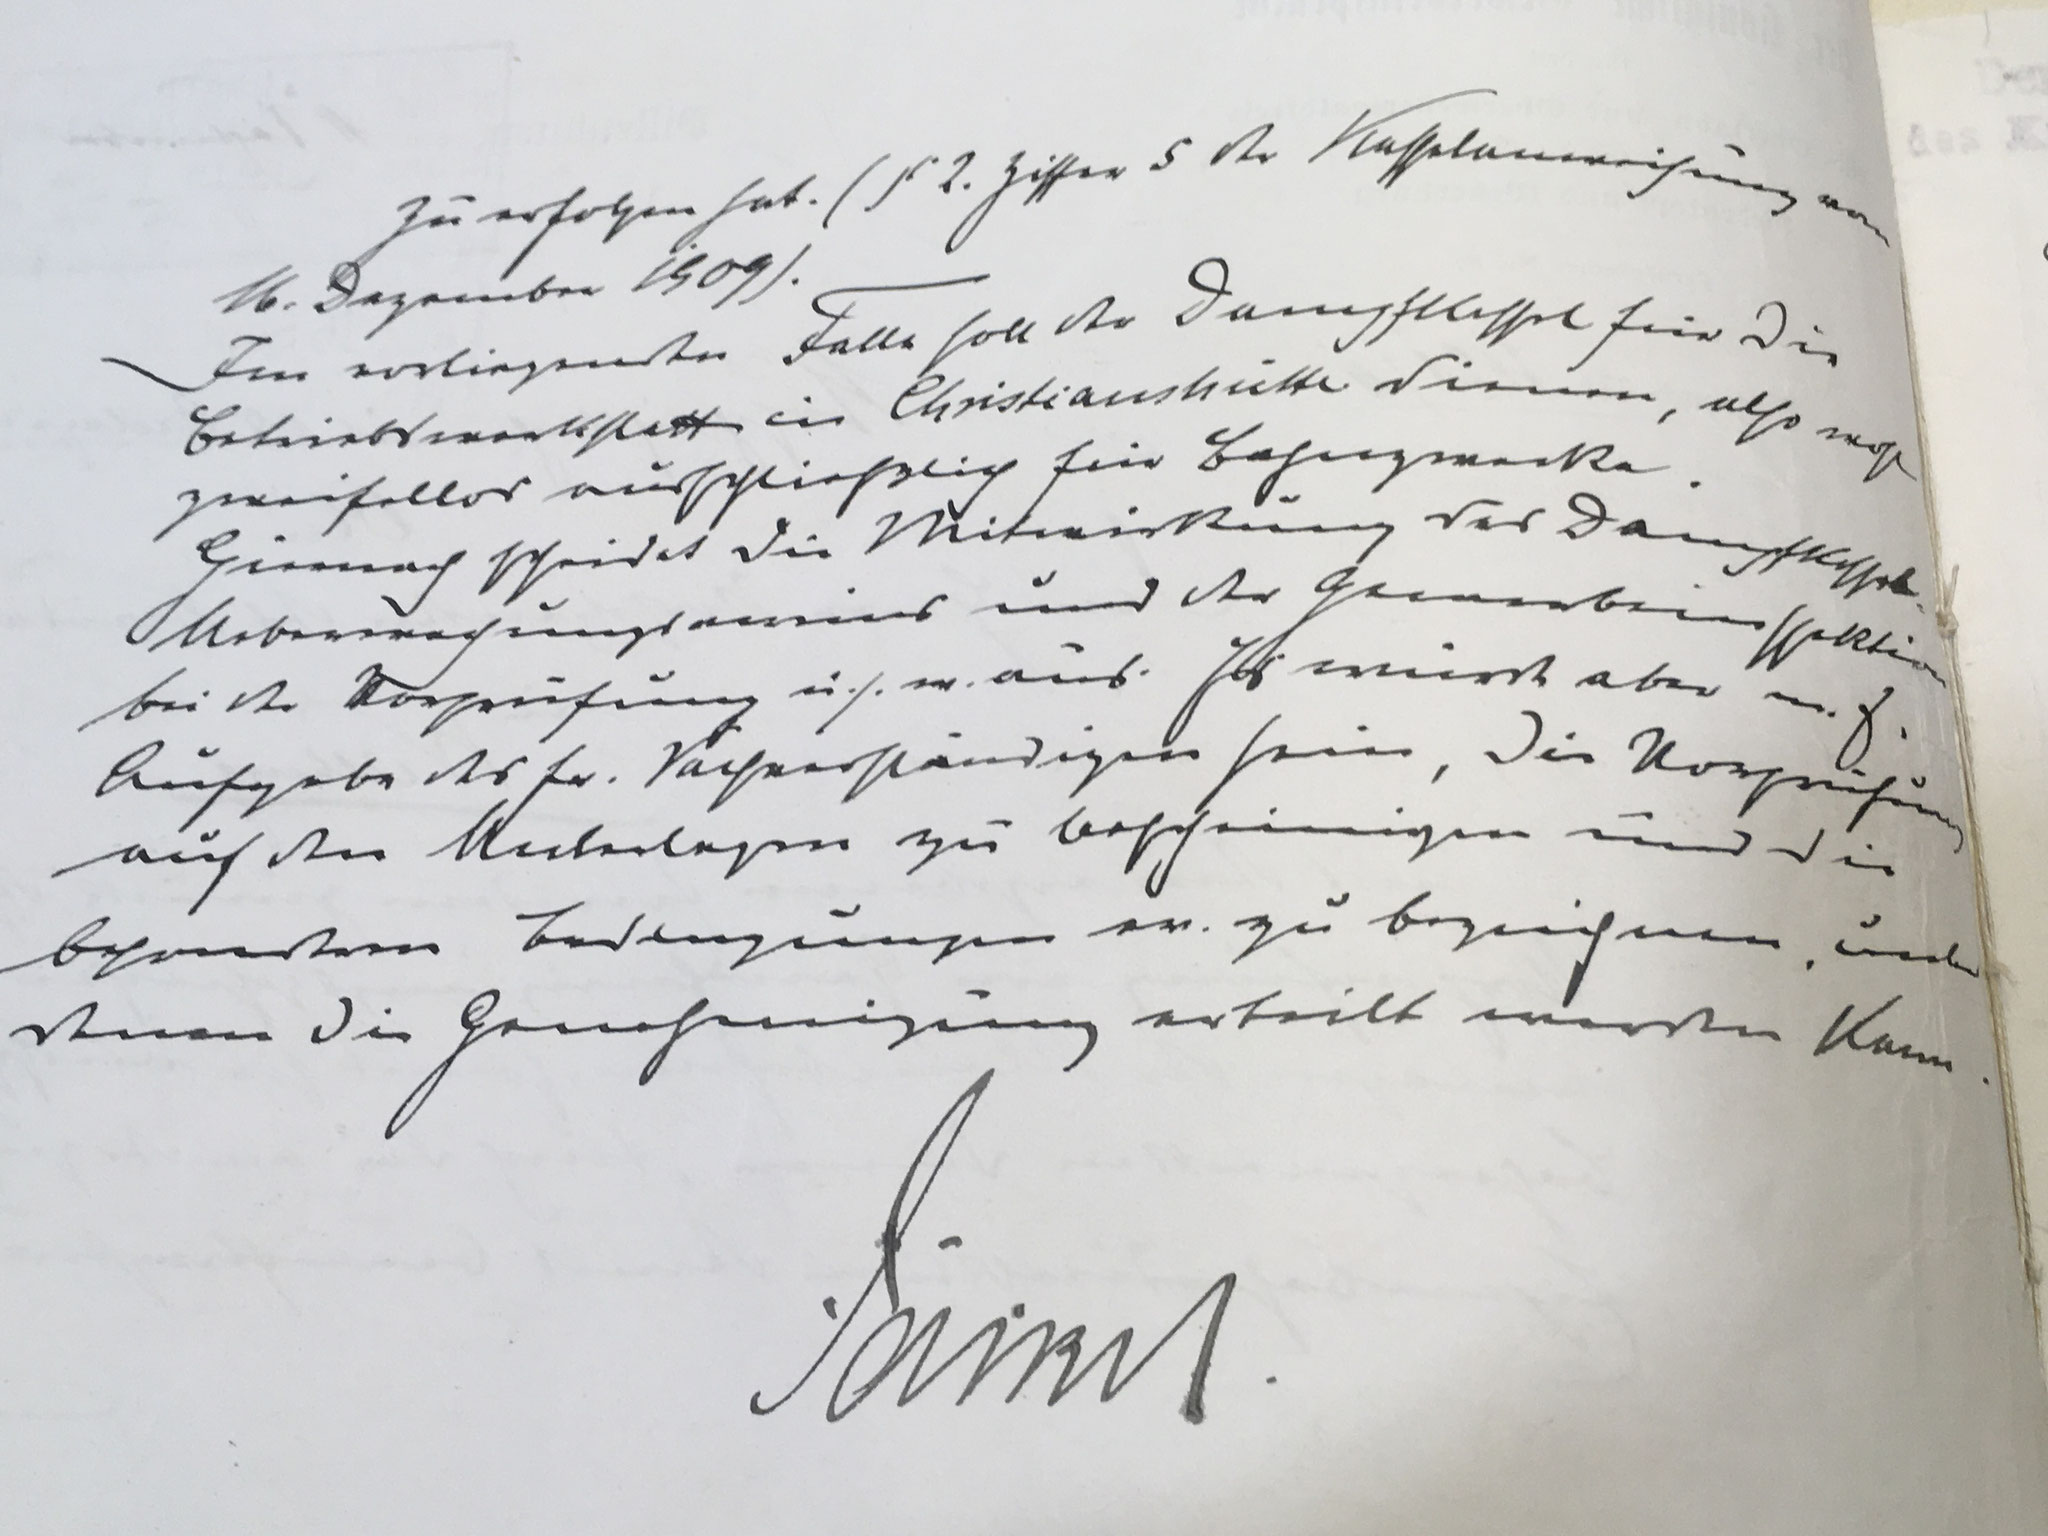 zu erfolgen hat. (§ 2. Ziffer 5 der Kesselanweisung vom
16. Dezember 1909).
Im vorliegenden Falle soll der Dampfkessel für die
Betriebswerkstatt in Christianshütte dienen, also wohl
zweifellos ausschließlich für Bahnzwecke.
Hiernach scheidet die Mitwirkung des Dampfkessel-
Ueberwachungsvereins und der Gewerbeinspektion
bei der Vorprüfung u. s. w. aus. Es würde aber m. E.
Aufgabe des Hr. Sachverständigen sein, die Vorprüfung
auf den Unterlagen zu bescheinigen und die
besonderen Bedingungen ev. zu bezeichnen, unter
denen die Genehmigung erteilt werden kann.